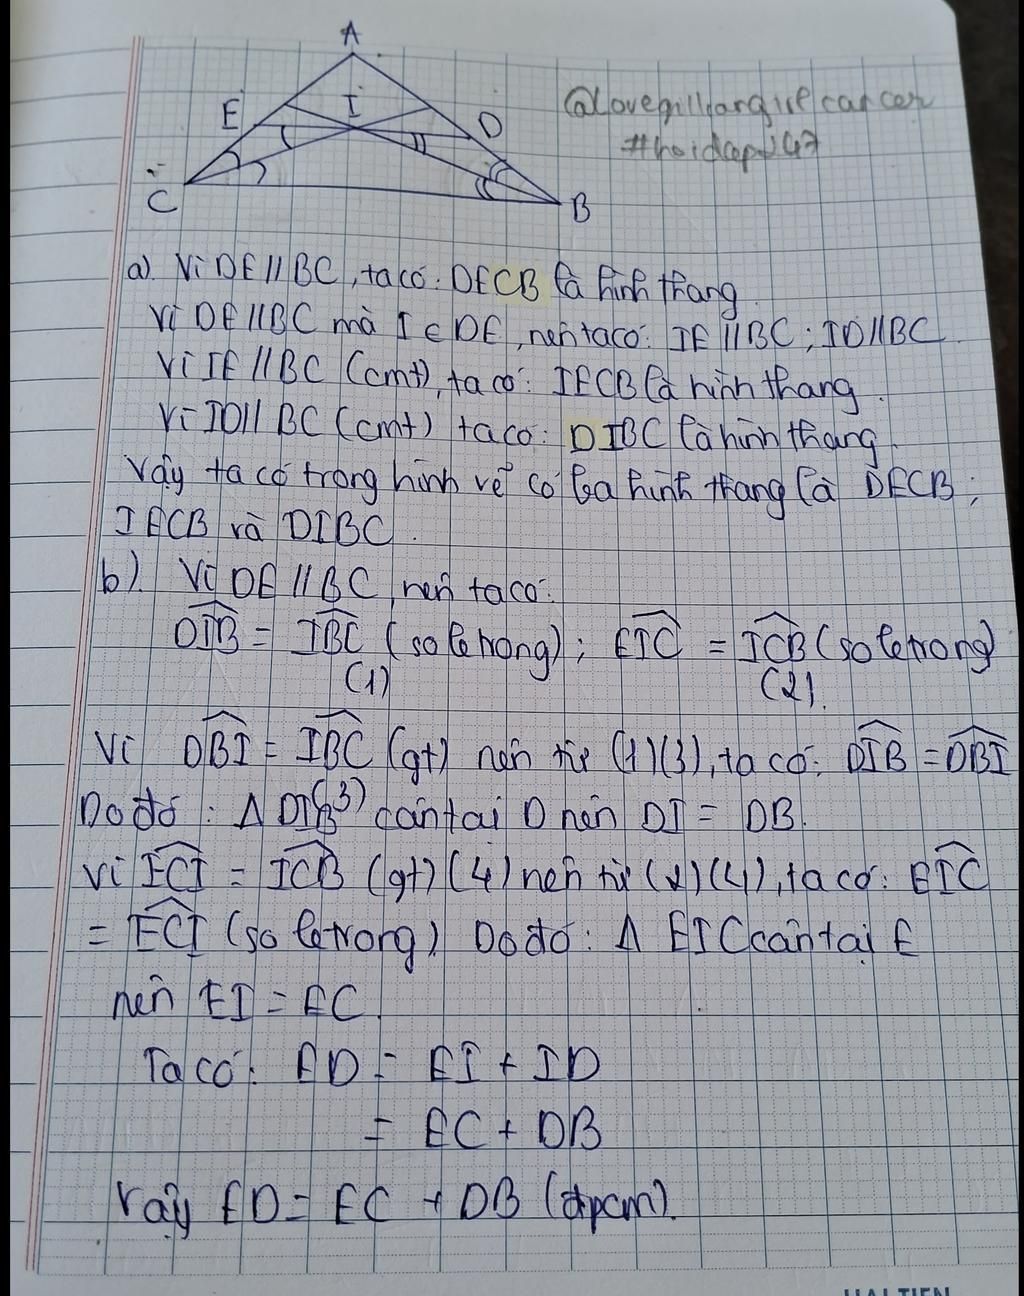 A
E
I
D
C
B
@Lovegilljargirl cancer
#hoidap247
a). Vì DE // BC, ta có: DECB là hình thang.
Vì DE // BC mà I ∈ DE, nên ta có: IE // BC ; ID // BC.
Vì IE // BC (cmt), ta có: IECB là hình thang.
Vì ID // BC (cmt) ta có: DIBC là hình thang.
Vậy ta có trong hình vẽ có ba hình thang là DECB ;
IECB và DIBC.
b). Vì DE // BC, nên ta có:
DIB = IBC (so le trong) ; EIC = ICB (so le trong)
(1) (2).
Vì DBI = IBC (gt) nên từ (1)(3), ta có: DIB = DBI
(3)
Do đó : Δ DIB cân tại D nên DI = DB.
Vì ECI = ICB (gt) (4) nên từ (2)(4), ta có: EIC
= ECI (so le trong). Do đó: Δ EIC cân tại E
nên EI = EC.
Ta có: ED = EI + ID
= EC + DB
Vậy ED = EC + DB (đpcm).